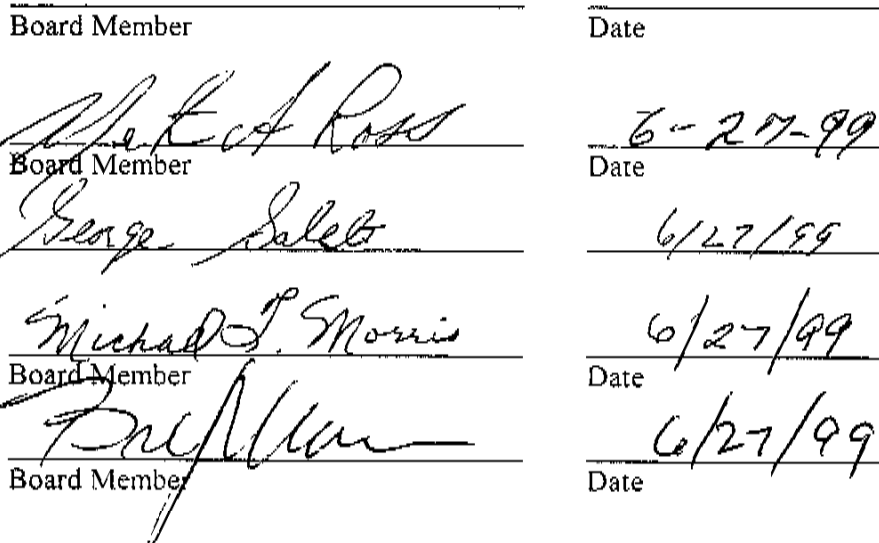 Board Member Date
A Ross 6-27-99
Board Member Date
George 6/27/99
Michael J. Morris 6/27/99
Board Member Date
6/27/99
Board Member Date